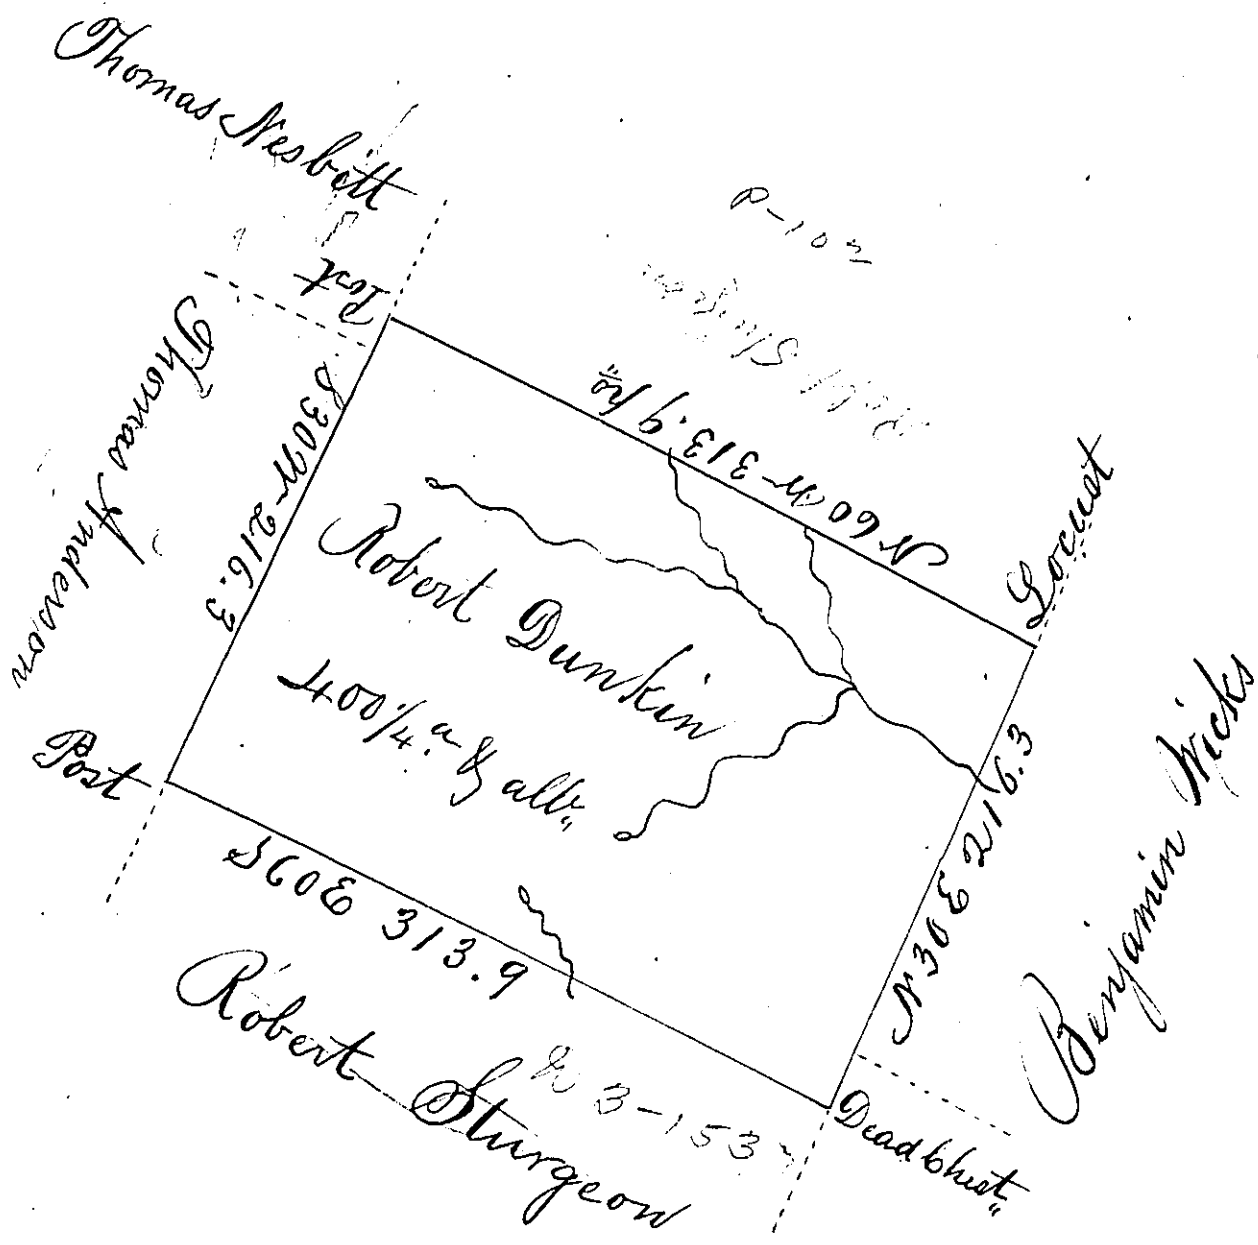 Thomas Nesbitt
P-102
Post
Thomas Anderson
S30W-216.3
N60W-313.9
Locust
Robert Dunkin
400¼ a & all"
Benjamin Wicks
N30E 216.3
Post
S60E 313.9
Robert Sturgeon
3-153
Dead Chest"